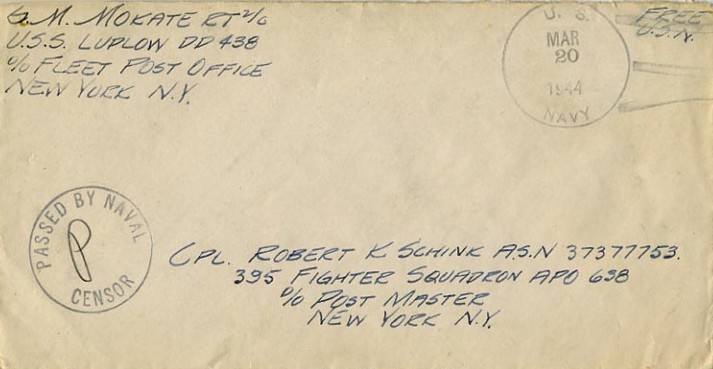 G. M. MOKATE RT 2/C
U.S.S. LUDLOW DD 438
℅ FLEET POST OFFICE
NEW YORK N.Y.
U. S.
MAR
20
1944
NAVY
FREE
U.S.N.
PASSED BY NAVAL
CENSOR
CPL. ROBERT K SCHINK A.S.N 37377753.
395 FIGHTER SQUADRON APO 638
℅ POST MASTER
NEW YORK N.Y.